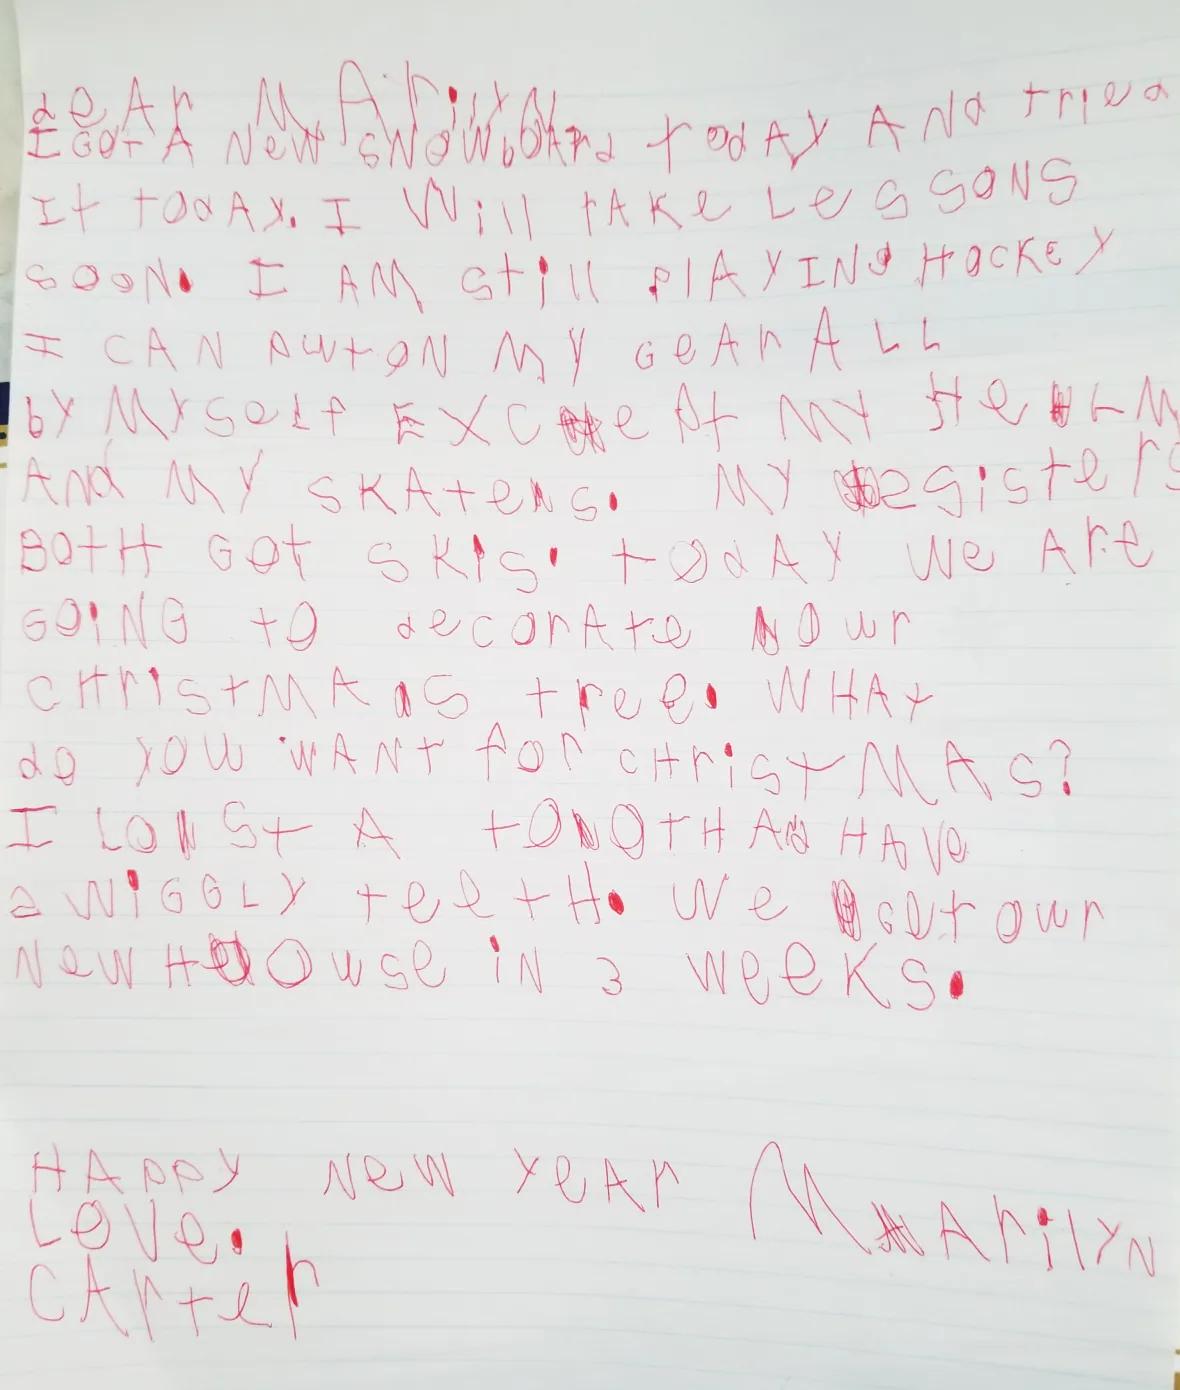 deAr MArilyN
I Got A New sNowboArd todAy ANd tried
It todAy. I Will tAKe LessONS
sooN. I AM still plAYING HocKey
I CAN putoN MY GeAr ALL
by MYself EXCePt MY HeLM
ANd MY SKAtes. MY sisters
BOtH Got SKIS. todAY We Are
GOiNG to decorAte Our
CHristMAS tree. WHAt
do YOU WANt for CHristMAS?
I LOSt A tOOtH ANd HAVe
a WiGGLY teetH. We Get our
New HOuse iN 3 weeKS.
HAppy New YeAr MArilyN
LOVe.
CArter